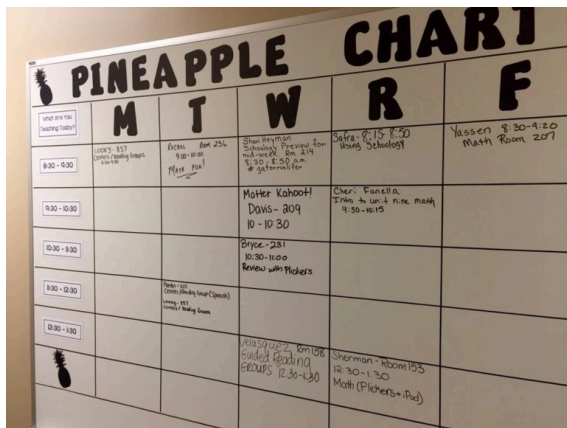 PINEAPPLE CHART
What Are You
Teaching Today?
M
T
W
R
F
8:30 - 9:30
LOONY - 857
Centers / Reading Groups
RACHEL Room 236
9:00 - 10:00
MATH FUN!
Shari Heyman
Schoology Preview for
mid-week. Rm 214
8:30 - 8:50 a.m.
# gatornralifer
Safra - 8:15 - 8:50
Using Schoology
Yassen 8:30-9:20
Math Room 207
9:30 - 10:30
Matter Kahoot!
Davis - 209
10 - 10:30
Cheri Fanella
Intro to unit nine math
9:30 - 10:15
10:30 - 11:30
Bryce - 231
10:30 - 11:00
Review with Plickers
11:30 - 12:30
Centers/Reading Groups (Spanish)
Centers / Reading Groups
12:30 - 1:30
Velasquez Rm 158
Guided Reading
GROUPS 12:30-1:30
Sherman - Room 153
12:30 - 1:30
Math (Plickers + iPad)